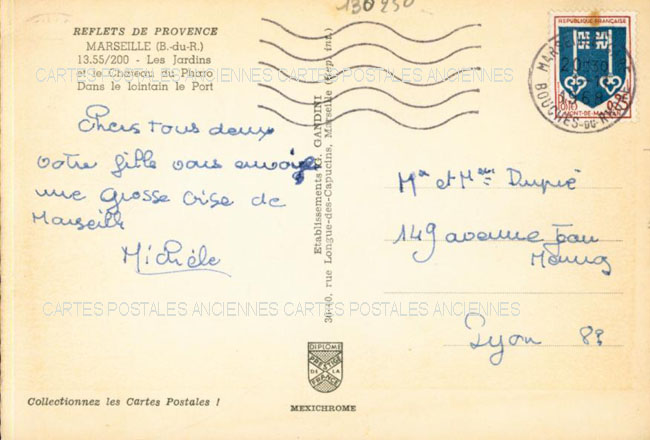 130 250
REFLETS DE PROVENCE
MARSEILLE (B.-du-R.)
13.55/200 - Les Jardins
et le Chateau du Pharo
Dans le lointain le Port
Chers tous deux
votre fille vous envoie
une grosse bise de
Marseille
Michèle
Etablissements G. GANDINI
rue Longue-des-Capucins, Marseille (Rep. int.)
REPUBLIQUE FRANÇAISE
MONT-DE-MARSAN
BOUCHES-DU-RHONE
Mr et Mme Dupré
149 avenue Jean
Lyon 8
CARTES POSTALES ANCIENNES CARTES POSTALES ANCIENNES
CARTES POSTALES ANCIENNES CARTES POSTALES ANCIENNES
DIPLOME
PRESTIGE
DE LA
FRANCE
Collectionnez les Cartes Postales !
MEXICHROME